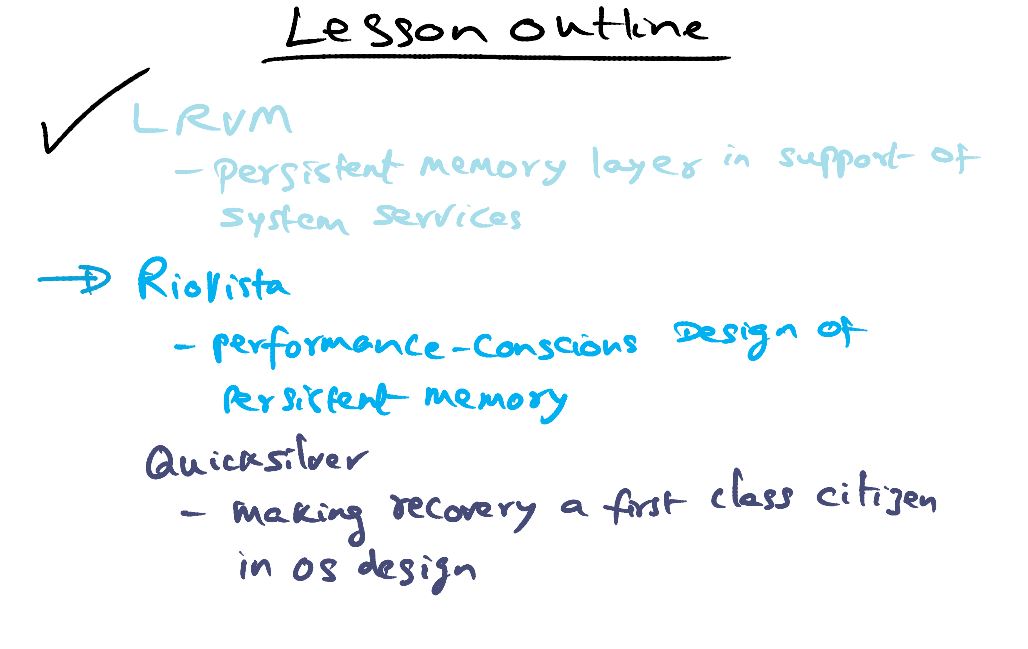 Lesson outline
LRVM
- persistent memory layer in support of
system services
RioVista
- performance-conscious design of
persistent memory
Quicksilver
- making recovery a first class citizen
in os design